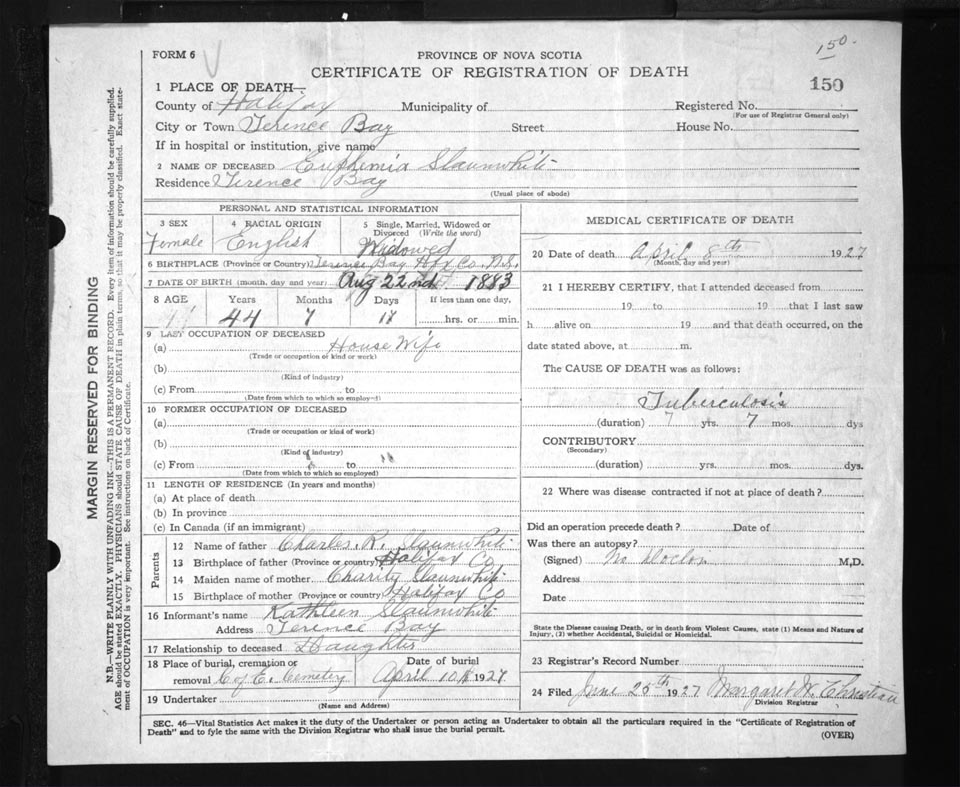 150.
FORM 6
PROVINCE OF NOVA SCOTIA
CERTIFICATE OF REGISTRATION OF DEATH
150
1 PLACE OF DEATH—
County of Halifax Municipality of Registered No.
(For use of Registrar General only)
City or Town Terence Bay Street House No.
If in hospital or institution, give name
2 NAME OF DECEASED Euphemia Slaunwhite
Residence Terence Bay
(Usual place of abode)
PERSONAL AND STATISTICAL INFORMATION
3 SEX 4 RACIAL ORIGIN 5 Single, Married, Widowed or
Divorced (Write the word)
Female English Widowed
6 BIRTHPLACE (Province or Country) Terence Bay Hfx Co. N.S.
7 DATE OF BIRTH (month, day and year) Aug 22nd 1883
8 AGE Years Months Days If less than one day,
44 7 hrs. or min.
9 LAST OCCUPATION OF DECEASED
(a) House Wife
(Trade or occupation or kind or work)
(b)
(Kind of industry)
(c) From to
(Date from which to which so employed)
10 FORMER OCCUPATION OF DECEASED
(a)
(Trade or occupation or kind of work)
(b)
(Kind of industry)
(c) From to
(Date from which to which so employed)
11 LENGTH OF RESIDENCE (In years and months)
(a) At place of death
(b) In province
(c) In Canada (if an immigrant)
Parents
12 Name of father Charles. R. Slaunwhite
13 Birthplace of father (Province or country) Halifax Co
14 Maiden name of mother Charity Slaunwhite
15 Birthplace of mother (Province or country) Halifax Co
16 Informant's name Kathleen Slaunwhite
Address Terence Bay
17 Relationship to deceased Daughter
18 Place of burial, cremation or Date of burial
removal C of E. Cemetery April 10th 1927.
19 Undertaker
(Name and Address)
MEDICAL CERTIFICATE OF DEATH
20 Date of death April 8th 1927
(Month, day and year)
21 I HEREBY CERTIFY, that I attended deceased from
19 to 19 that I last saw
h alive on 19 and that death occurred, on the
date stated above, at m.
The CAUSE OF DEATH was as follows:
Tuberculosis
(duration) 7 yrs. 7 mos. dys
CONTRIBUTORY
(Secondary)
(duration) yrs. mos. dys.
22 Where was disease contracted if not at place of death?
Did an operation precede death? Date of
Was there an autopsy?
(Signed) No Doctor M.D.
Address
Date
State the Disease causing Death, or in death from Violent Causes, state (1) Means and Nature of
Injury, (2) whether Accidental, Suicidal or Homicidal.
23 Registrar's Record Number
24 Filed June 25th 1927 Margaret W. Christian
Division Registrar
SEC. 46—Vital Statistics Act makes it the duty of the Undertaker or person acting as Undertaker to obtain all the particulars required in the "Certificate of Registration of
Death" and to fyle the same with the Division Registrar who shall issue the burial permit.
(OVER)
MARGIN RESERVED FOR BINDING
N.B.—WRITE PLAINLY WITH UNFADING INK—THIS IS A PERMANENT RECORD. Every item of information should be carefully supplied.
AGE should be stated EXACTLY. PHYSICIANS should STATE CAUSE OF DEATH in plain terms, so that it may be properly classified. Exact state-
ment of OCCUPATION is very important. See instructions on back of Certificate.